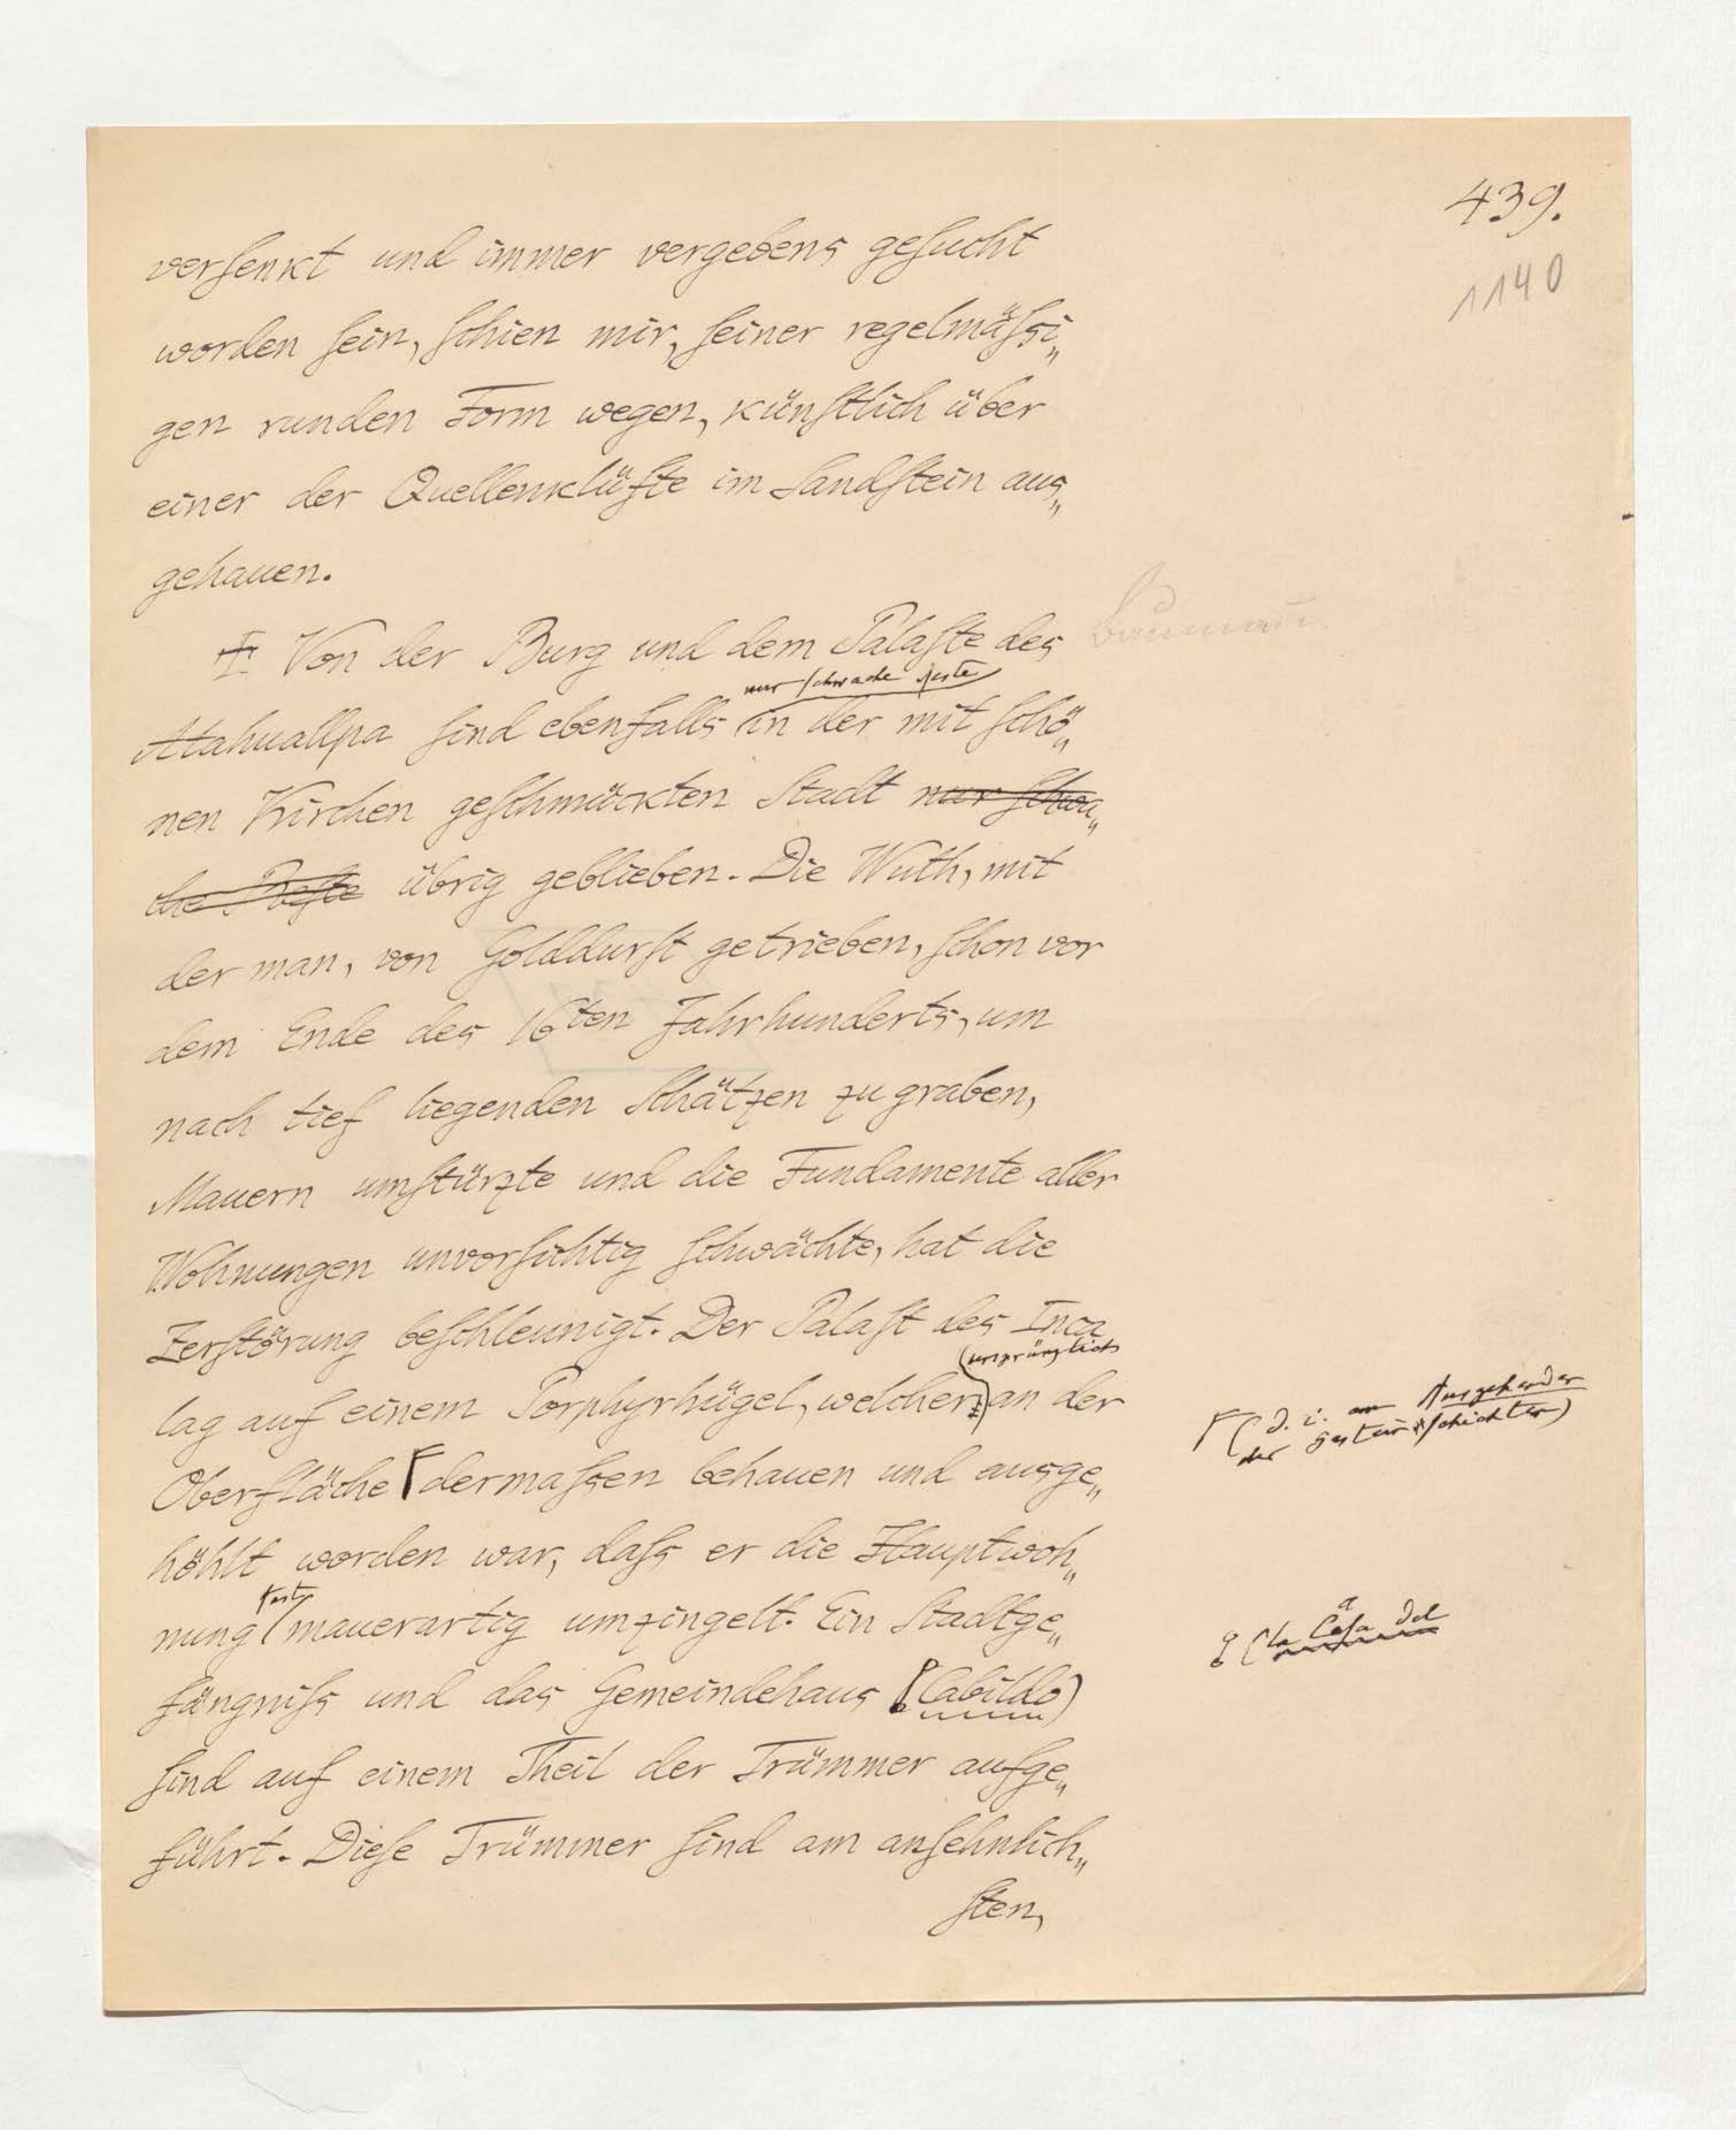 439.
1140
versenkt und immer vergebens gesucht
worden sein, schien mir, seiner regelmäſsi„
gen runden Form wegen, künstlich über
einer der Quellenklüfte im Sandstein aus„
gehauen.
Von der Burg und dem Palaste des
nur schwache Reste
Atahuallpa sind ebenfalls in der mit schö„
nen Kirchen geschmückten Stadt nur schwa„
che Reste übrig geblieben. Die Wuth, mit
der man, von Golddurst getrieben, schon vor
dem Ende des 16ten Jahrhunderts, um
nach tief liegenden Schätzen zu graben,
Mauern umstürzte und die Fundamente aller
Wohnungen unvorsichtig schwächte, hat die
Zerstörung beschleunigt. Der Palast des Inca
(ursprünglich
lag auf einem Porphyrhügel, welcher) an der
Oberfläche dermaſsen behauen und ausge„
(d. i. am Ausgehenden
der Gesteinsschichten)
höhlt worden war, daſs er die Hauptwoh„
fast
nung mauerartig umzingelt. Ein Stadtge„
fängniſs und das Gemeindehaus (Cabildo)
(la Casa del
sind auf einem Theil der Trümmer aufge„
führt. Diese Trümmer sind am ansehnlich„
sten,